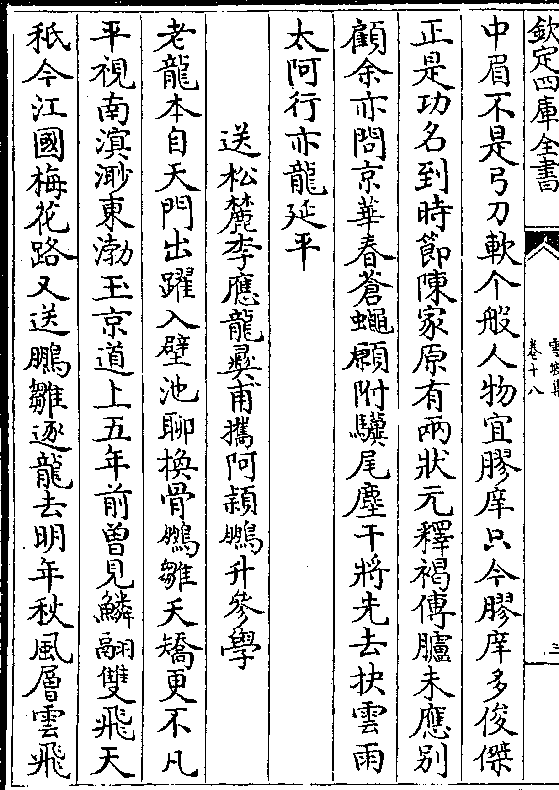 欽定四庫全書
卷十八
三
中眉不是弓刀軟个般人物宜膠庠只今膠庠多俊傑
正是功名到時節陳家原有兩狀元釋褐傳臚未應别
顧余亦問京華春蒼蠅願附驥尾塵干將先去抉雲雨
太阿行亦龍延平
送松麓李應龍㢸甫攜阿穎鵬升參學
老龍本自天門出躍入壁池聊換骨鵬雛夭矯更不凡
平視南溟渺東渤玉京道上五年前曾見鱗翮雙飛天
秖今江國梅花路又送鵬雛逐龍去明年秋風層雲飛